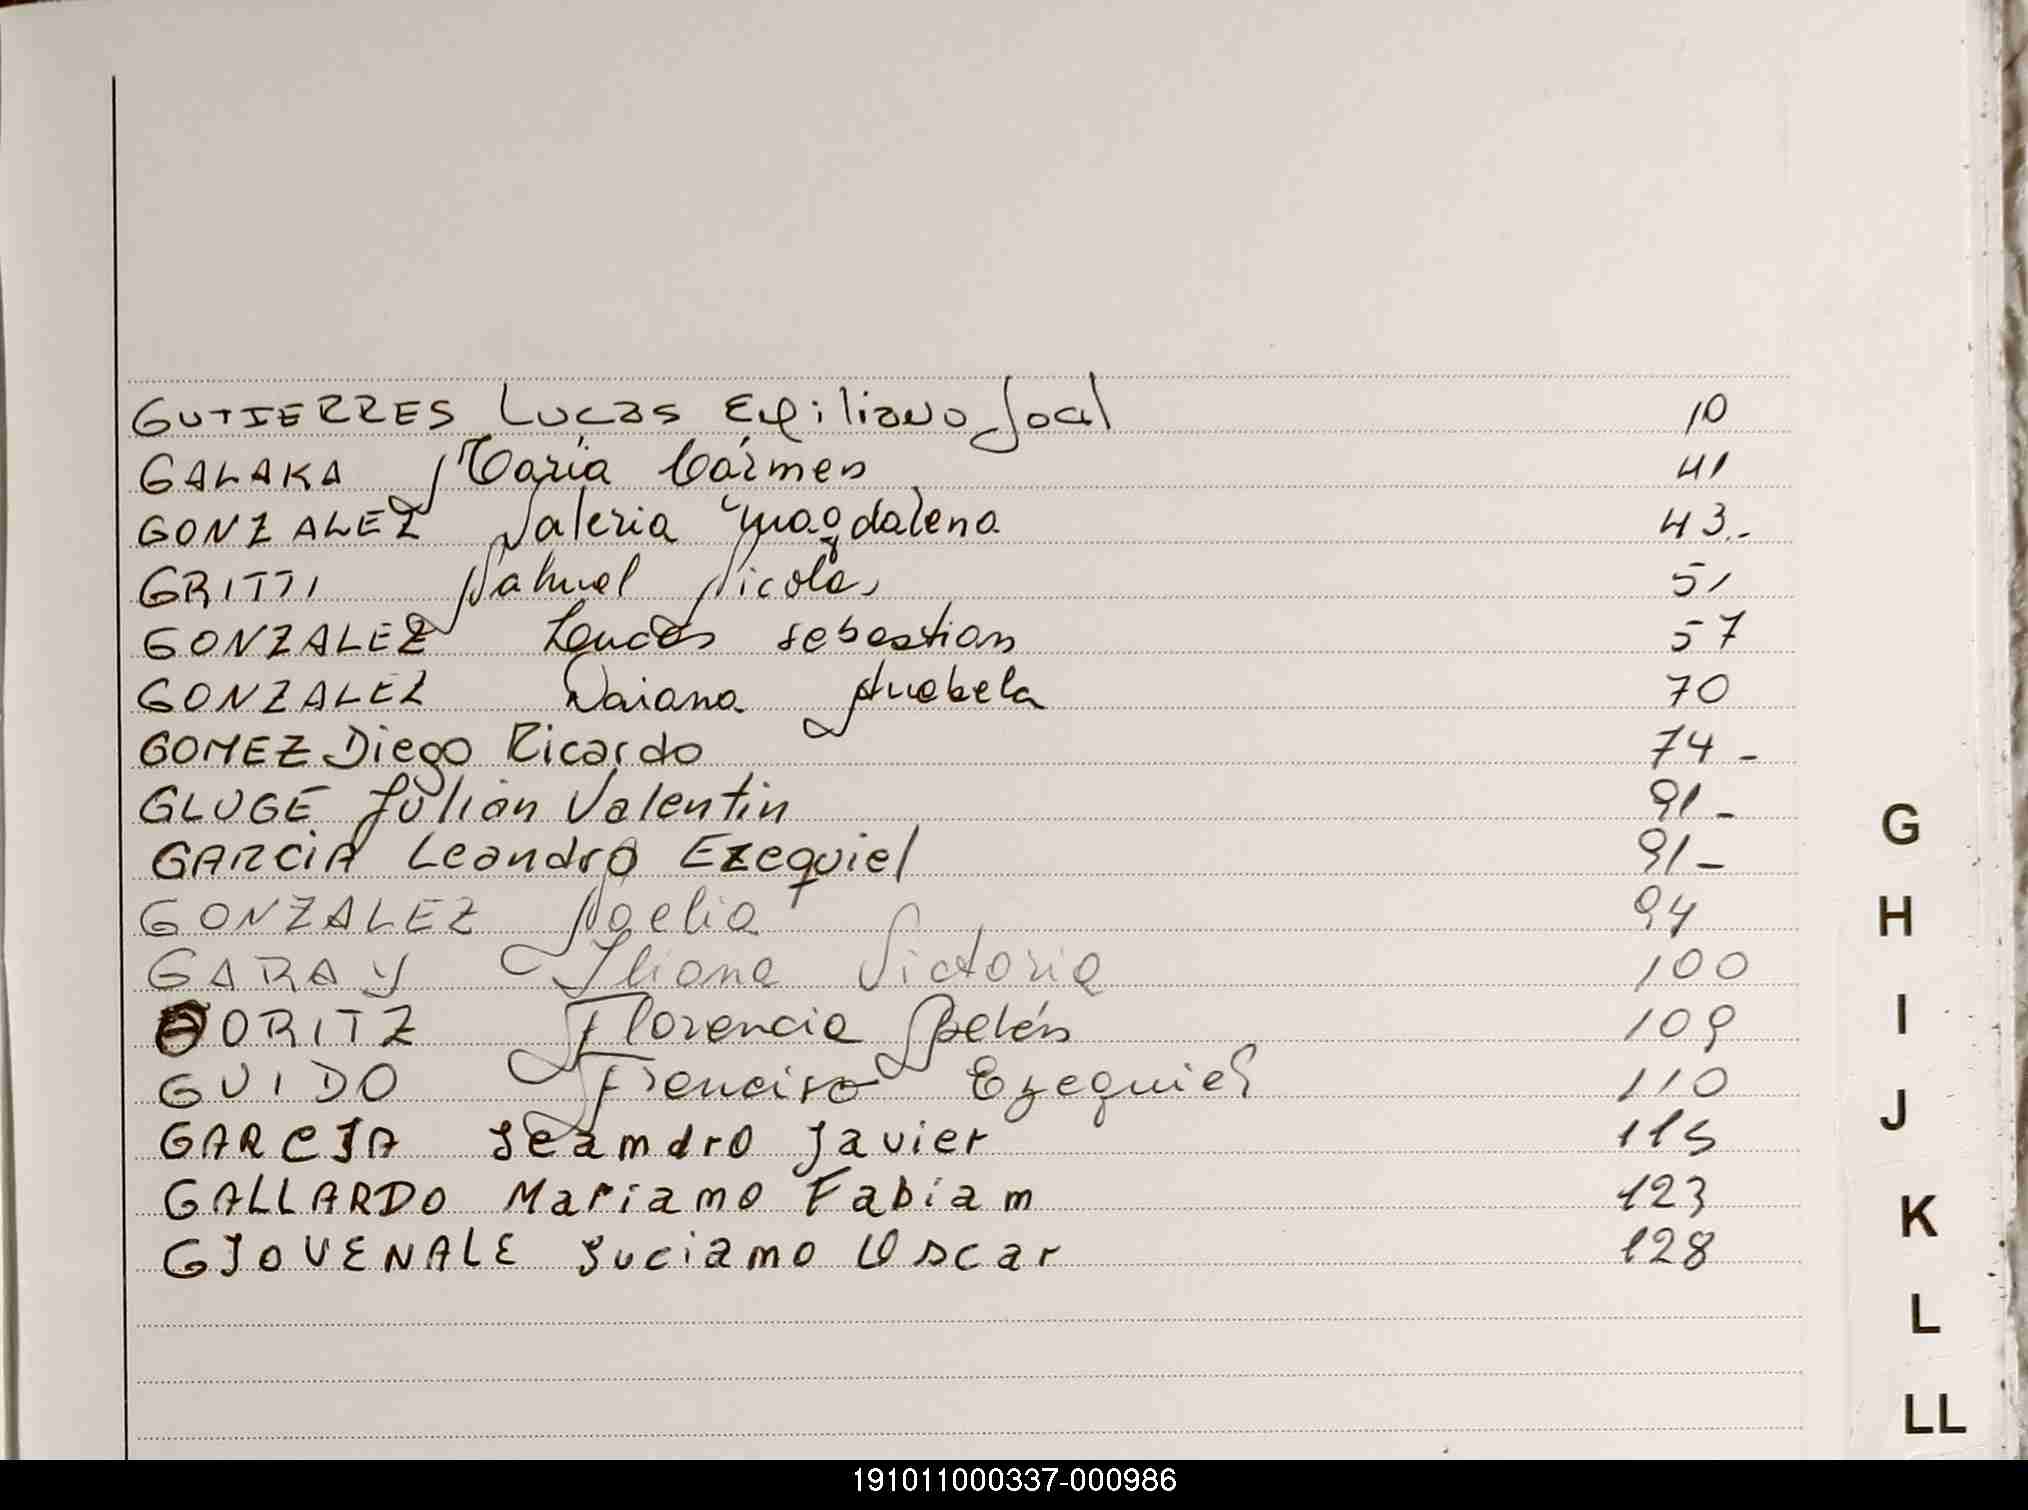 GUTIERRES Lucas Joal 10
GALAKA Maria Cármen 41
GONZALEZ Valeria Magdalena 43.-
GRITTI Nahuel Nicolas 51
GONZALEZ Lucas sebastian 57
GONZALEZ Daiana Anabela 70
GOMEZ Diego Ricardo 74 -
GLUGE Julián Valentin 91 -
GARCiA Leandro Ezequiel 91 -
GONZALEZ Noelia 94
GARAY Iliana Victoria 100
GORITZ Florencia Belén 109
GUIDO Francisco Ezequiel 110
GARCIA Leamdro Javier 115
GALLARDO Mariamo Fabiam 123
GIOVENALE Luciamo Oscar 128
G
H
I
J
K
L
LL
191011000337-000986